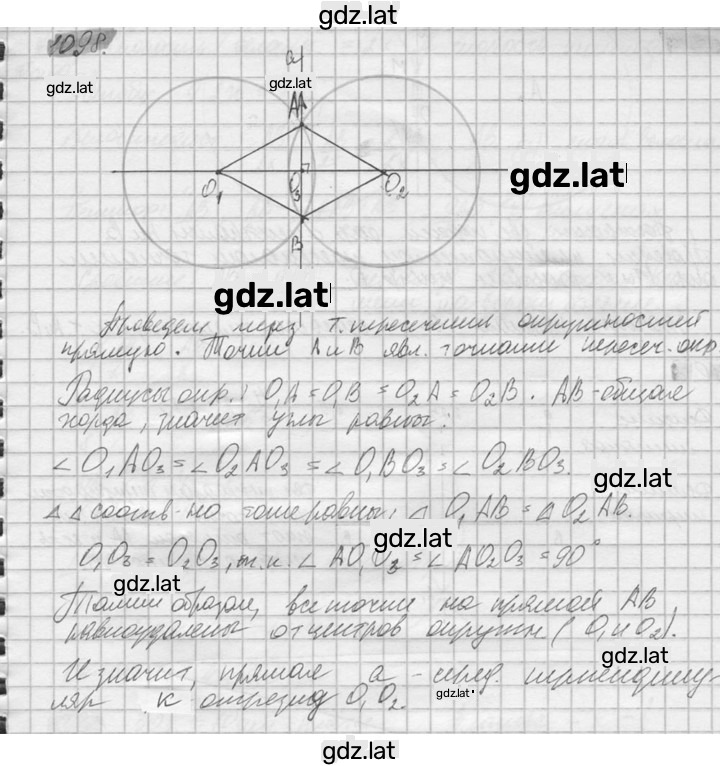 gdz.lat
1098.
a
gdz.lat
gdz.lat
A
O₁
O₃
O₂
gdz.lat
B
gdz.lat
Проведем через т. пересечения окружностей
прямую. Точки A и B явл. точками пересеч. окр
Радиусы окр.: O₁A = O₁B = O₂A = O₂B. AB - общая
хорда, значит углы равны:
∠O₁AO₃ = ∠O₂AO₃ = ∠O₁BO₃ = ∠O₂BO₃.
gdz.lat
△△ соотв-но тоже равны: △O₁AB = △O₂AB.
gdz.lat
O₁O₃ = O₂O₃, т.к. ∠AO₁O₃ = ∠AO₂O₃ = 90°
gdz.lat
Таким образом, все точки на прямой AB
равноудалены от центров окружн (O₁ и O₂).
gdz.lat
И значит, прямая a - серед. перпендику-
ляр к отрезку O₁O₂.
gdz.lat
gdz.lat